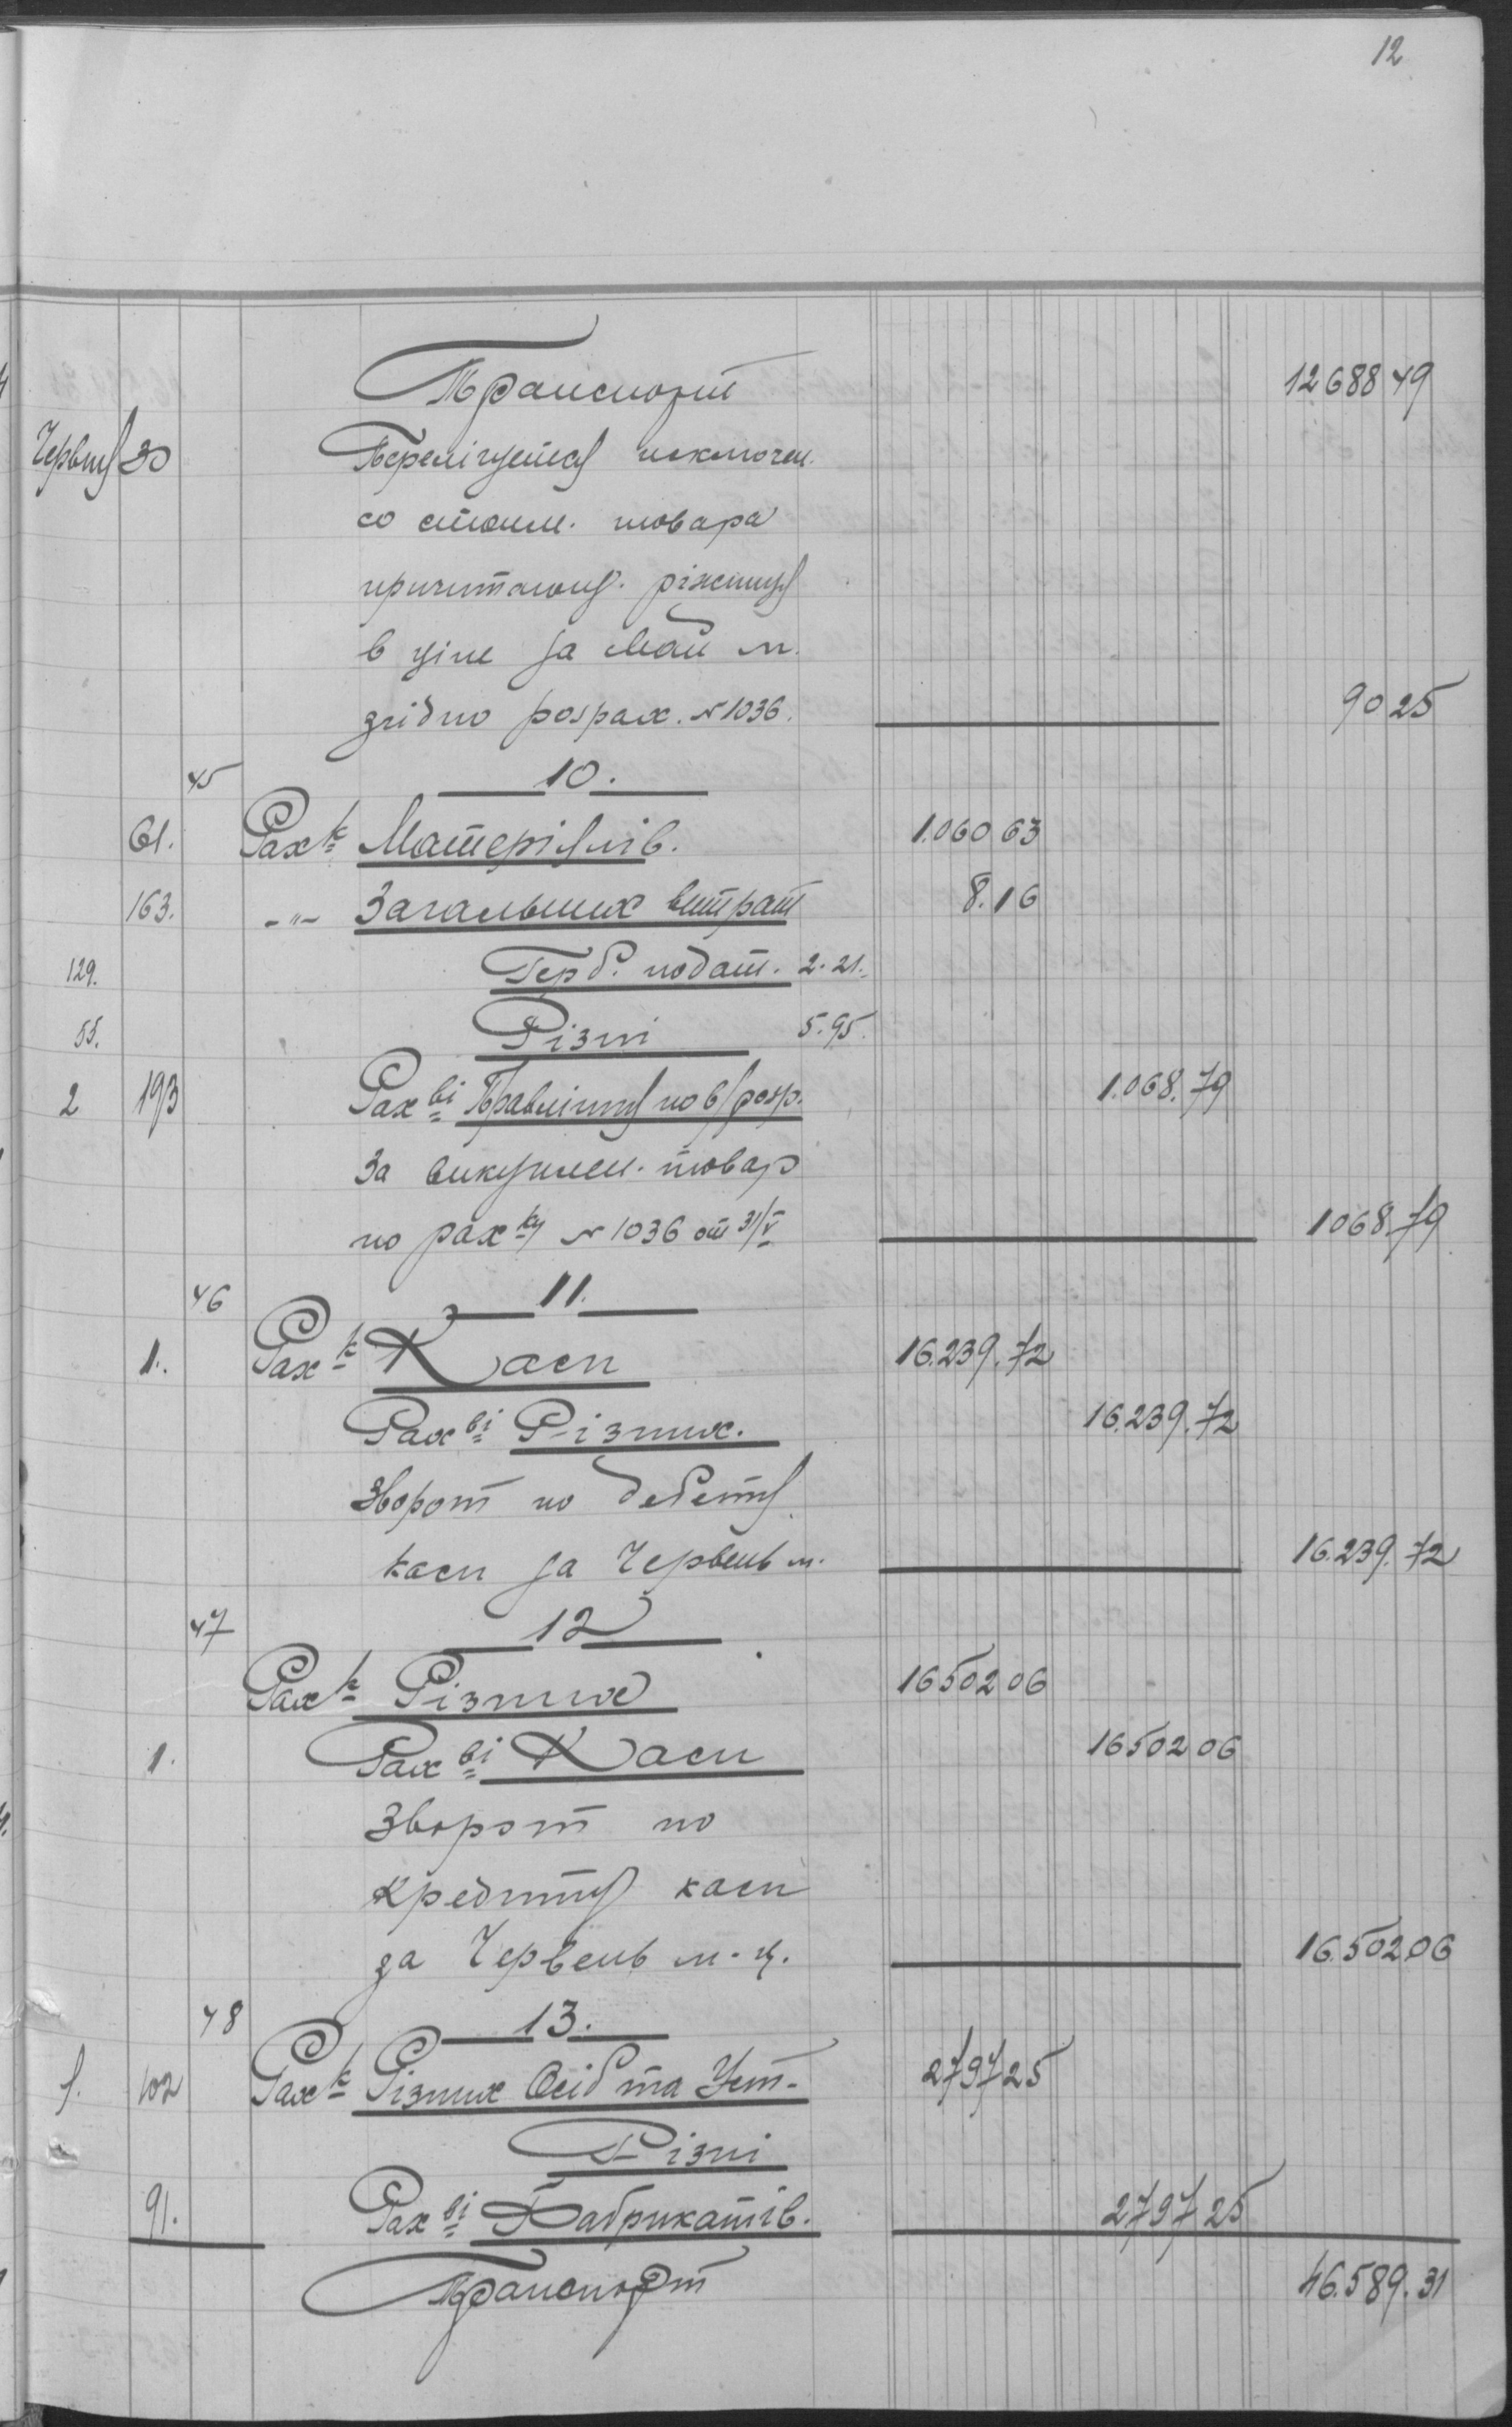 12
Транспорт 12688 49
Червня 30 Перелічується исключен.
со стоим. товара
причитающ. ріжниця
в ціне за Май м.
згідно розрах. № 1036. 90 25
45 10.
61. Рах-к Матеріялів. 1.060 63
163. -"- Загальних витрат 8.16
129. Герб. подат. 2.21.
55. Різні 5.95.
2 193 Рах-ві Правління по в/розр. 1.068.79
За викуплен. товар
по рах-ку № 1036 от 31/V 1068.79
46 11.
1. Рах-к Каси 16.239.72
Рах-ві Різних. 16.239.72
Зворот по дебету
каси за Червень м. 16.239.72
47 12
Рах-к Різних 16502 06
1. Рах-ві Каси 16502 06
Зворот по
кредиту каси
за Червень м-ц. 16.502.06
48 13.
1. 102 Рах-к Різних Осіб та Уст. 2797 25
Різні
91. Рах-ві Фабрикатів. 2797 25
Транспорт 46.589.31